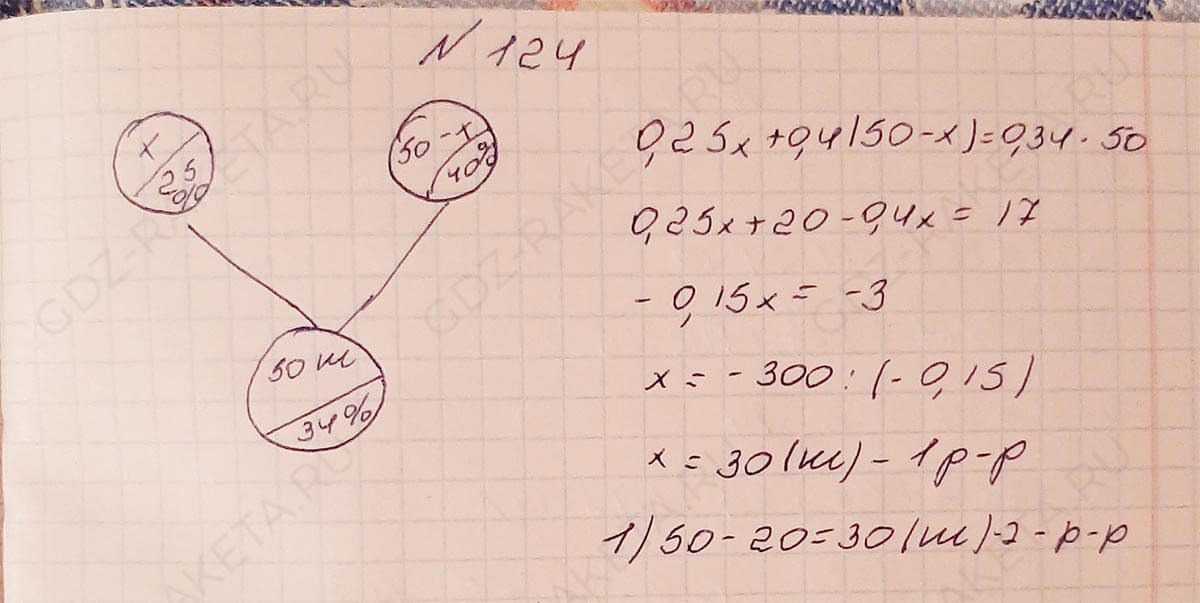 N 124
x
25 %
50 - x
40%
50 т
34%
0,25x + 0,4(50 - x) = 0,34 · 50
0,25x + 20 - 0,4x = 17
- 0,15x = -3
x = - 300 : (- 0,15)
x = 30 (т) - 1 р-р
1) 50 - 20 = 30 (т) - 2 - р-р
GDZ-RAKETA.RU
GDZ-RAKETA.RU
GDZ-RAKETA.RU